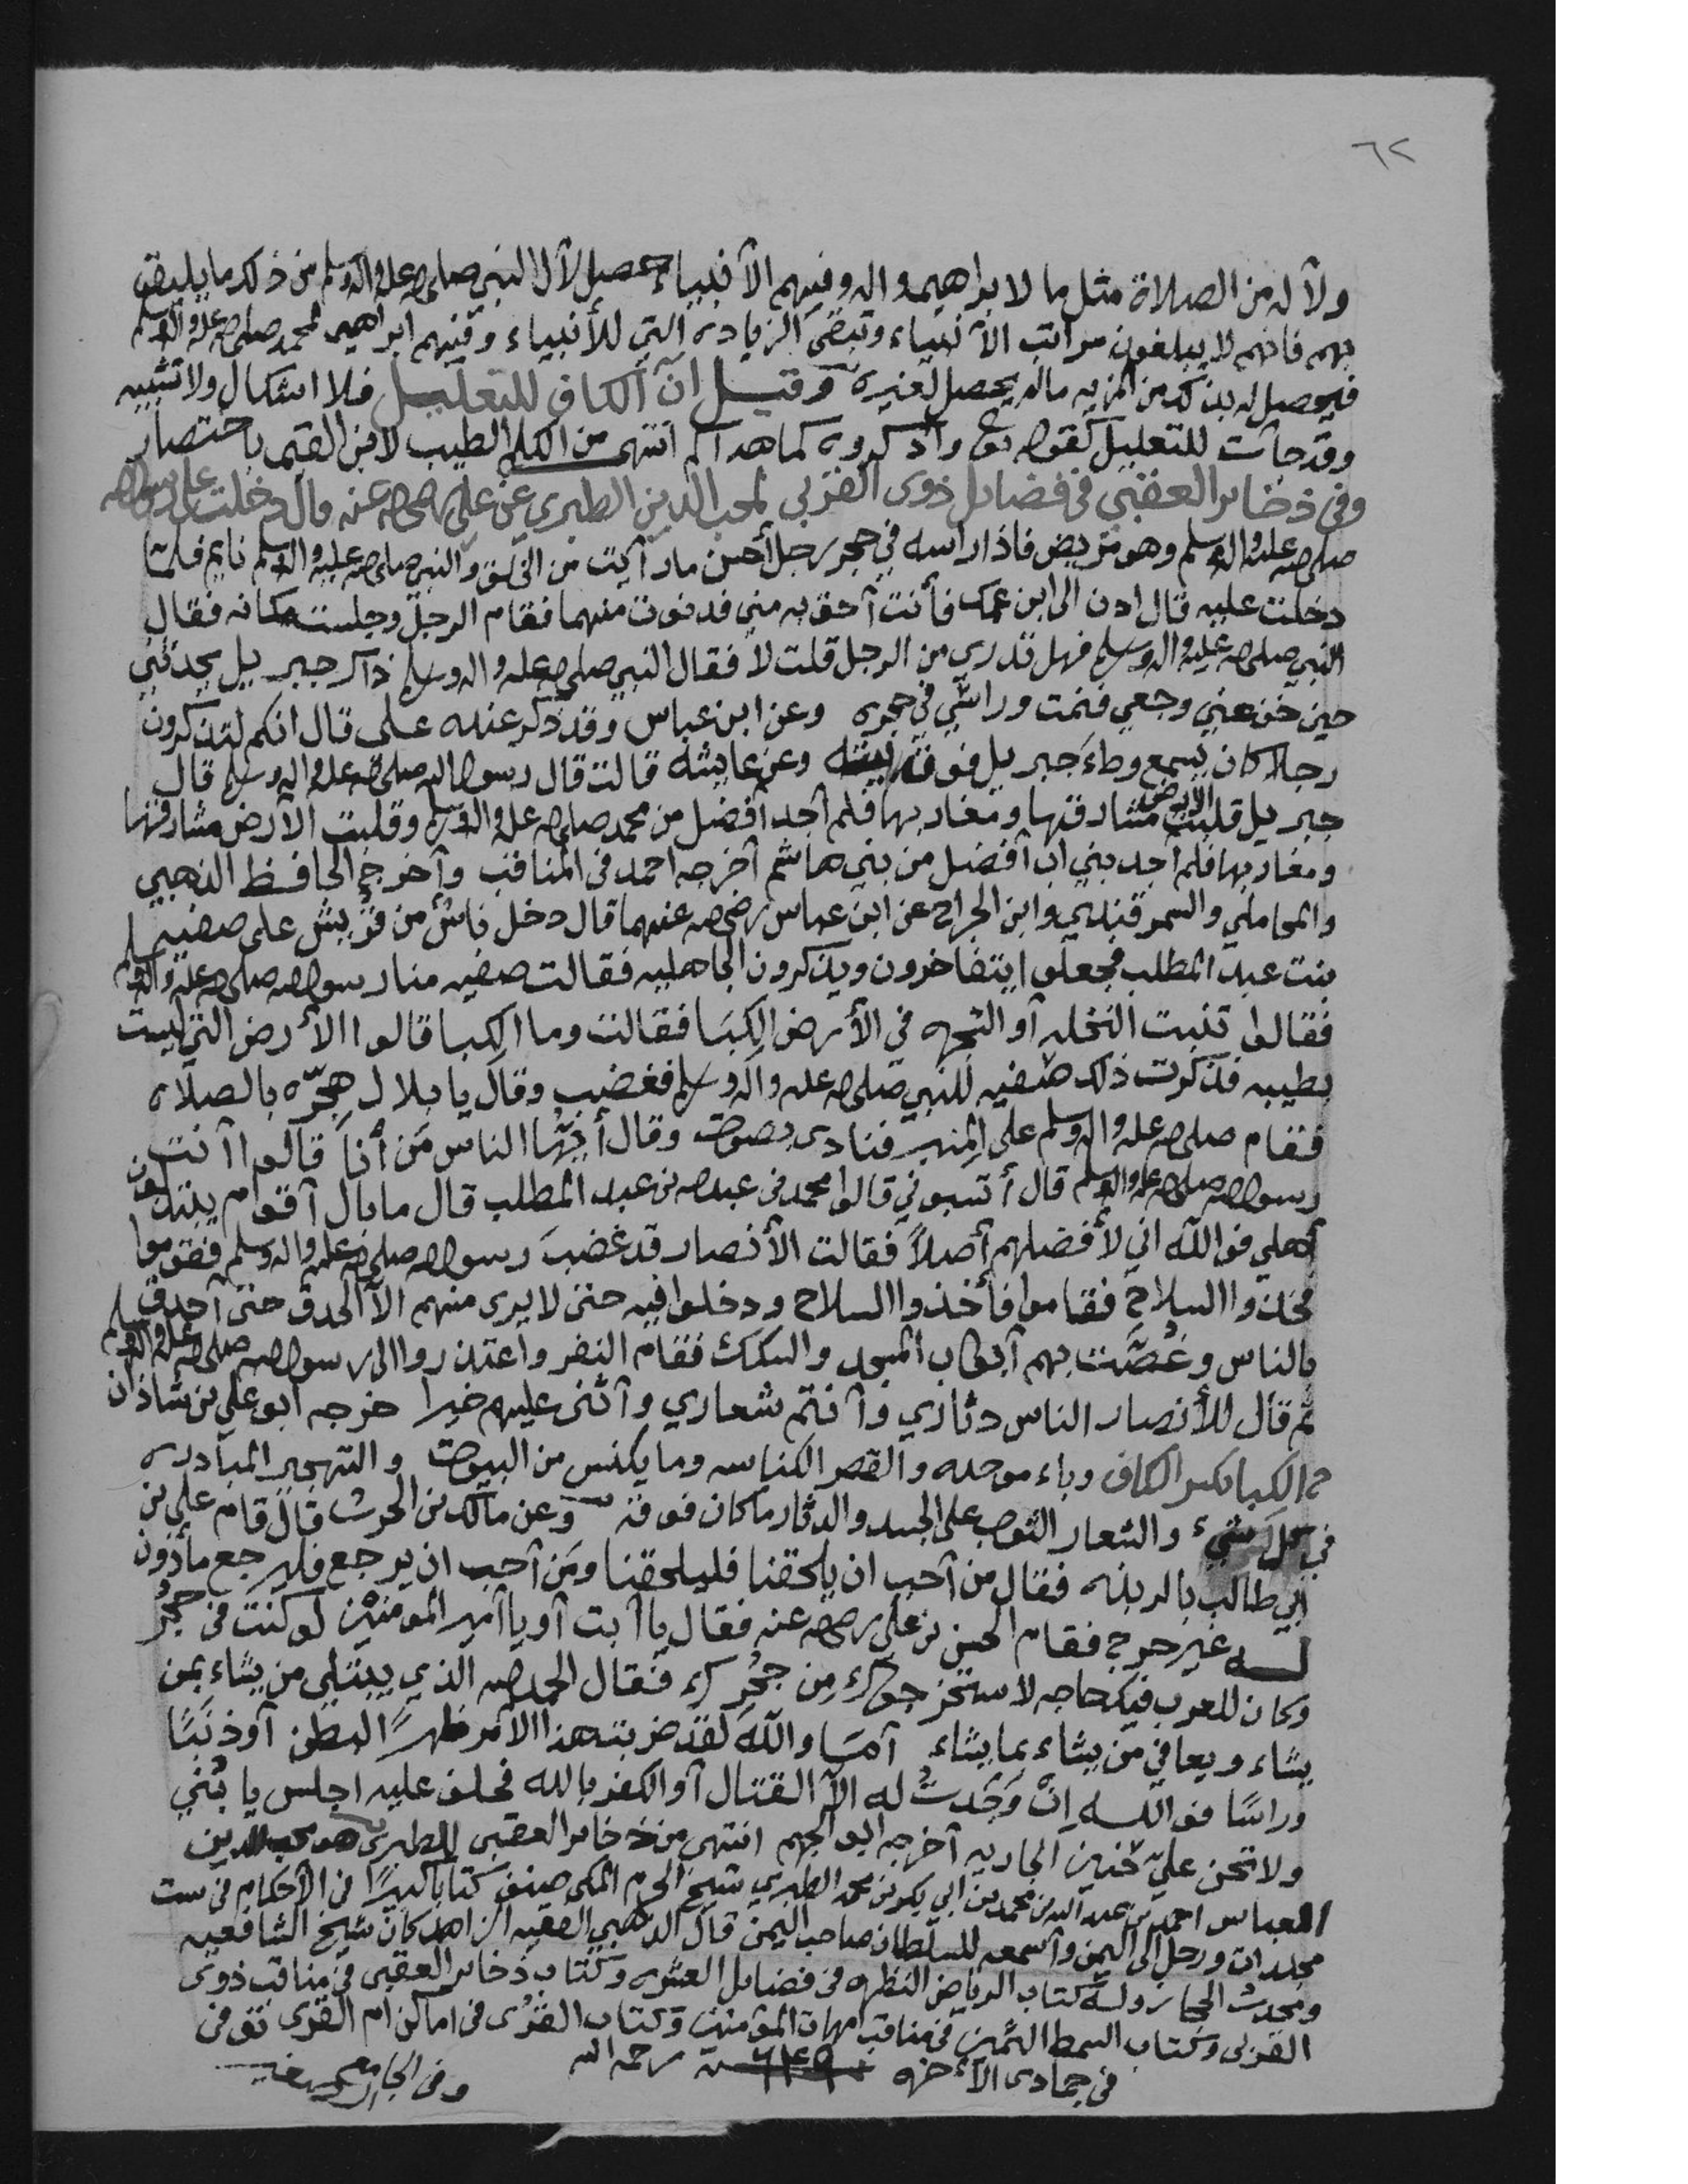 ٦٢
ولآله من الصلاة مثل ما لابراهيم واله وفيهم الأنبياء حصل لآل النبي صلى الله عليه واله وسلم من ذلك ما يليق
بهم فانهم لا يبلغون مراتب الأنبياء وتبقى الزيادة التي للأنبياء وفيهم ابراهيم لمحمد صلى الله عليه واله وسلم
فيحصل له بذلك من المزيه مالم يحصل لغيره وقيل ان الكاف للتعليل فلا اشكال ولا تشبيه
وقد جآت للتعليل كقوله تع واذكروه كما هداكم انتهى من الكلم الطيب لابن القيم باختصار
وفي ذخاير العقبى في فضايل ذوى القربى لمحب الدين الطبري عن علي رضي الله عنه قال دخلت على رسول الله
صلى الله عليه واله وسلم وهو مريض فاذا راسه في حجر رجل أحسن ما رأيت من الخلق والنبي صلى الله عليه واله وسلم نايم فلما
دخلت عليه قال ادن الى ابن عمك فأنت أحق به مني فدنوت منهما فقام الرجل وجلست مكانه فقال
النبي صلى الله عليه واله وسلم فهل تدري من الرجل قلت لا فقال النبي صلى الله عليه واله وسلم ذاك جبريل يحدثني
حين خف عني وجعي فنمت وراسي في حجره وعن ابن عباس وقد ذكر عنده علي قال انكم لتذكرون
رجلا كان يسمع وطاء جبريل فوق بيته وعن عايشه قالت قال رسول الله صلى الله عليه واله وسلم قال
جبريل قلبت الارض مشارقها ومغاربها فلم أجد أفضل من محمد صلى الله عليه واله وسلم وقلبت الأرض مشارقها
ومغاربها فلم أجد بني اب أفضل من بني هاشم أخرجه احمد في المناقب وأخرج الحافظ الذهبي
والمحاملي والسمرقندي وابن الجراح عن ابن عباس رضي الله عنهما قال دخل ناس من قريش على صفيه
بنت عبد المطلب فجعلوا يتفاخرون ويذكرون الجاهليه فقالت صفيه منا رسول الله صلى الله عليه واله وسلم
فقالوا تنبت النخله أو الشجره في الأرض الكبا فقالت وما الكبا قالوا الأرض التي ليست
بطيبه فذكرت ذلك صفيه للنبي صلى الله عليه واله وسلم فغضب وقال يا بلال هجّر بالصلاه
فقام صلى الله عليه واله وسلم على المنبر فنادى بصوت وقال أيّها الناس مَن أنا قالوا أنت
رسول الله صلى الله عليه واله وسلم قال أنسبوني قالوا محمد بن عبد الله بن عبد المطلب قال ما بال أقوام يبتذلون
أهلي فوالله اني لأفضلهم أصلاً فقالت الأنصار قد غضب رسول الله صلى الله عليه واله وسلم فقوموا
فخذوا السلاح فقاموا فأخذوا السلاح ودخلوا فيه حتى لا يرى منهم الا الحدق حتى أحدق
بالناس وغصّت بهم أبواب المسجد والسكك فقام النفر واعتذروا الى رسول الله صلى الله عليه واله وسلم
ثم قال للأنصار الناس دثاري وأنتم شعاري وأثنى عليهم خيرا خرجه ابو علي بن شاذان
الكبا بكسر الكاف وباء موحده والقصر الكناسه وما يكنس من البيوت والتهجير المبادره
في كل شيء والشعار الثوب على الجسد والدثار ما كان فوقه وعن مالك بن الحرث قال قام علي بن
أبي طالب بالربذه فقال من أحب ان يلحقنا فليلحقنا ومن أحب ان يرجع فليرجع مأذون
له غير حرج فقام الحسن بن علي رضي الله عنه فقال يا أبت أو يا أمير المومنين لو كنت في جُحر
وكان للعرب فيك حاجه لاستخرجوك من جُحرك فقال الحمد لله الذي يبتلي من يشاء بمن
يشاء ويعافي من يشاء بما يشاء أما والله لقد ضربت هذا الأمر ظهراً لبطن أو ذنبًا
وراسًا فوالله اِن وَجَدتُ له الا القتال أو الكفر بالله فحلف عليه اجلس يا بُني
ولا تحن عليّ حنين الجاريه أخرجه ابو الجهم انتهى من ذخاير العقبى للطبري هو محب الدين
العباس احمد بن عبد الله بن محمد بن ابي بكر بن محمد الطبري شيخ الحرم المكي صنف كتابا كبيرًا في الأحكام في ست
مجلدات ورحل الى اليمن وأسمعه للسلطان صاحب اليمن قال الذهبي الفقيه الزاهد كان شيخ الشافعيه
ومحدث الحجاز وله كتاب الرياض النظره في فضايل العشره وكتاب ذخاير العقبى في مناقب ذوى
القربى وكتاب السمط الثمين في مناقب امهات المؤمنين وكتاب القِرى في اماكن ام القرى توفى
في جمادى الآخره رحمه الله
وفي الجامع